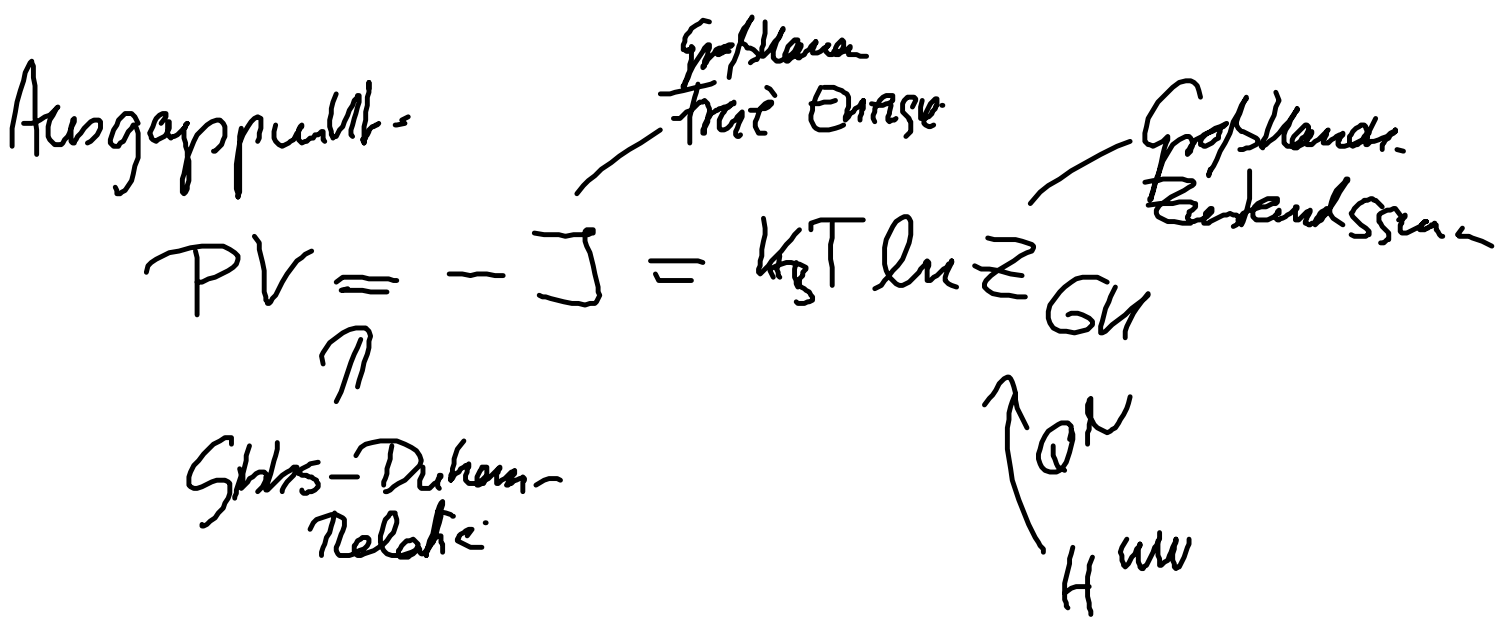 Ausgangspunkt.
Großkanon
Freie Energie
Großkanon.
Zustandssum.
PV = - J = k_B T ln Z_GK
Gibbs-Duhem-
Relatio
Q^N
H^WW